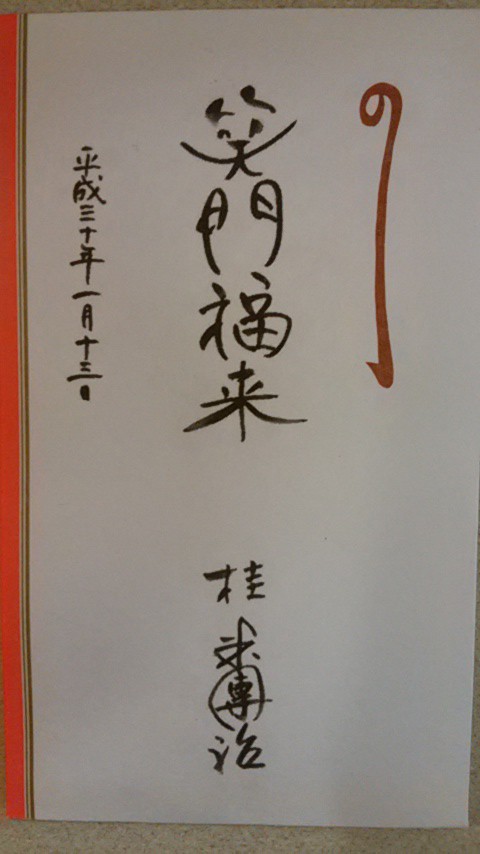 のし
笑門福来
桂 米團治
平成三十年一月十三日